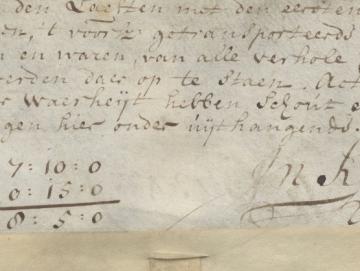 den Laesten met den eersten
en, 't voorsz: getransporteerds
en waren, van alle verhole
erden daer op te staen. Act
r Waerheijt hebben Schout e
gen hier onder uijthangends
7:10:0
0:15:0
8:5:0